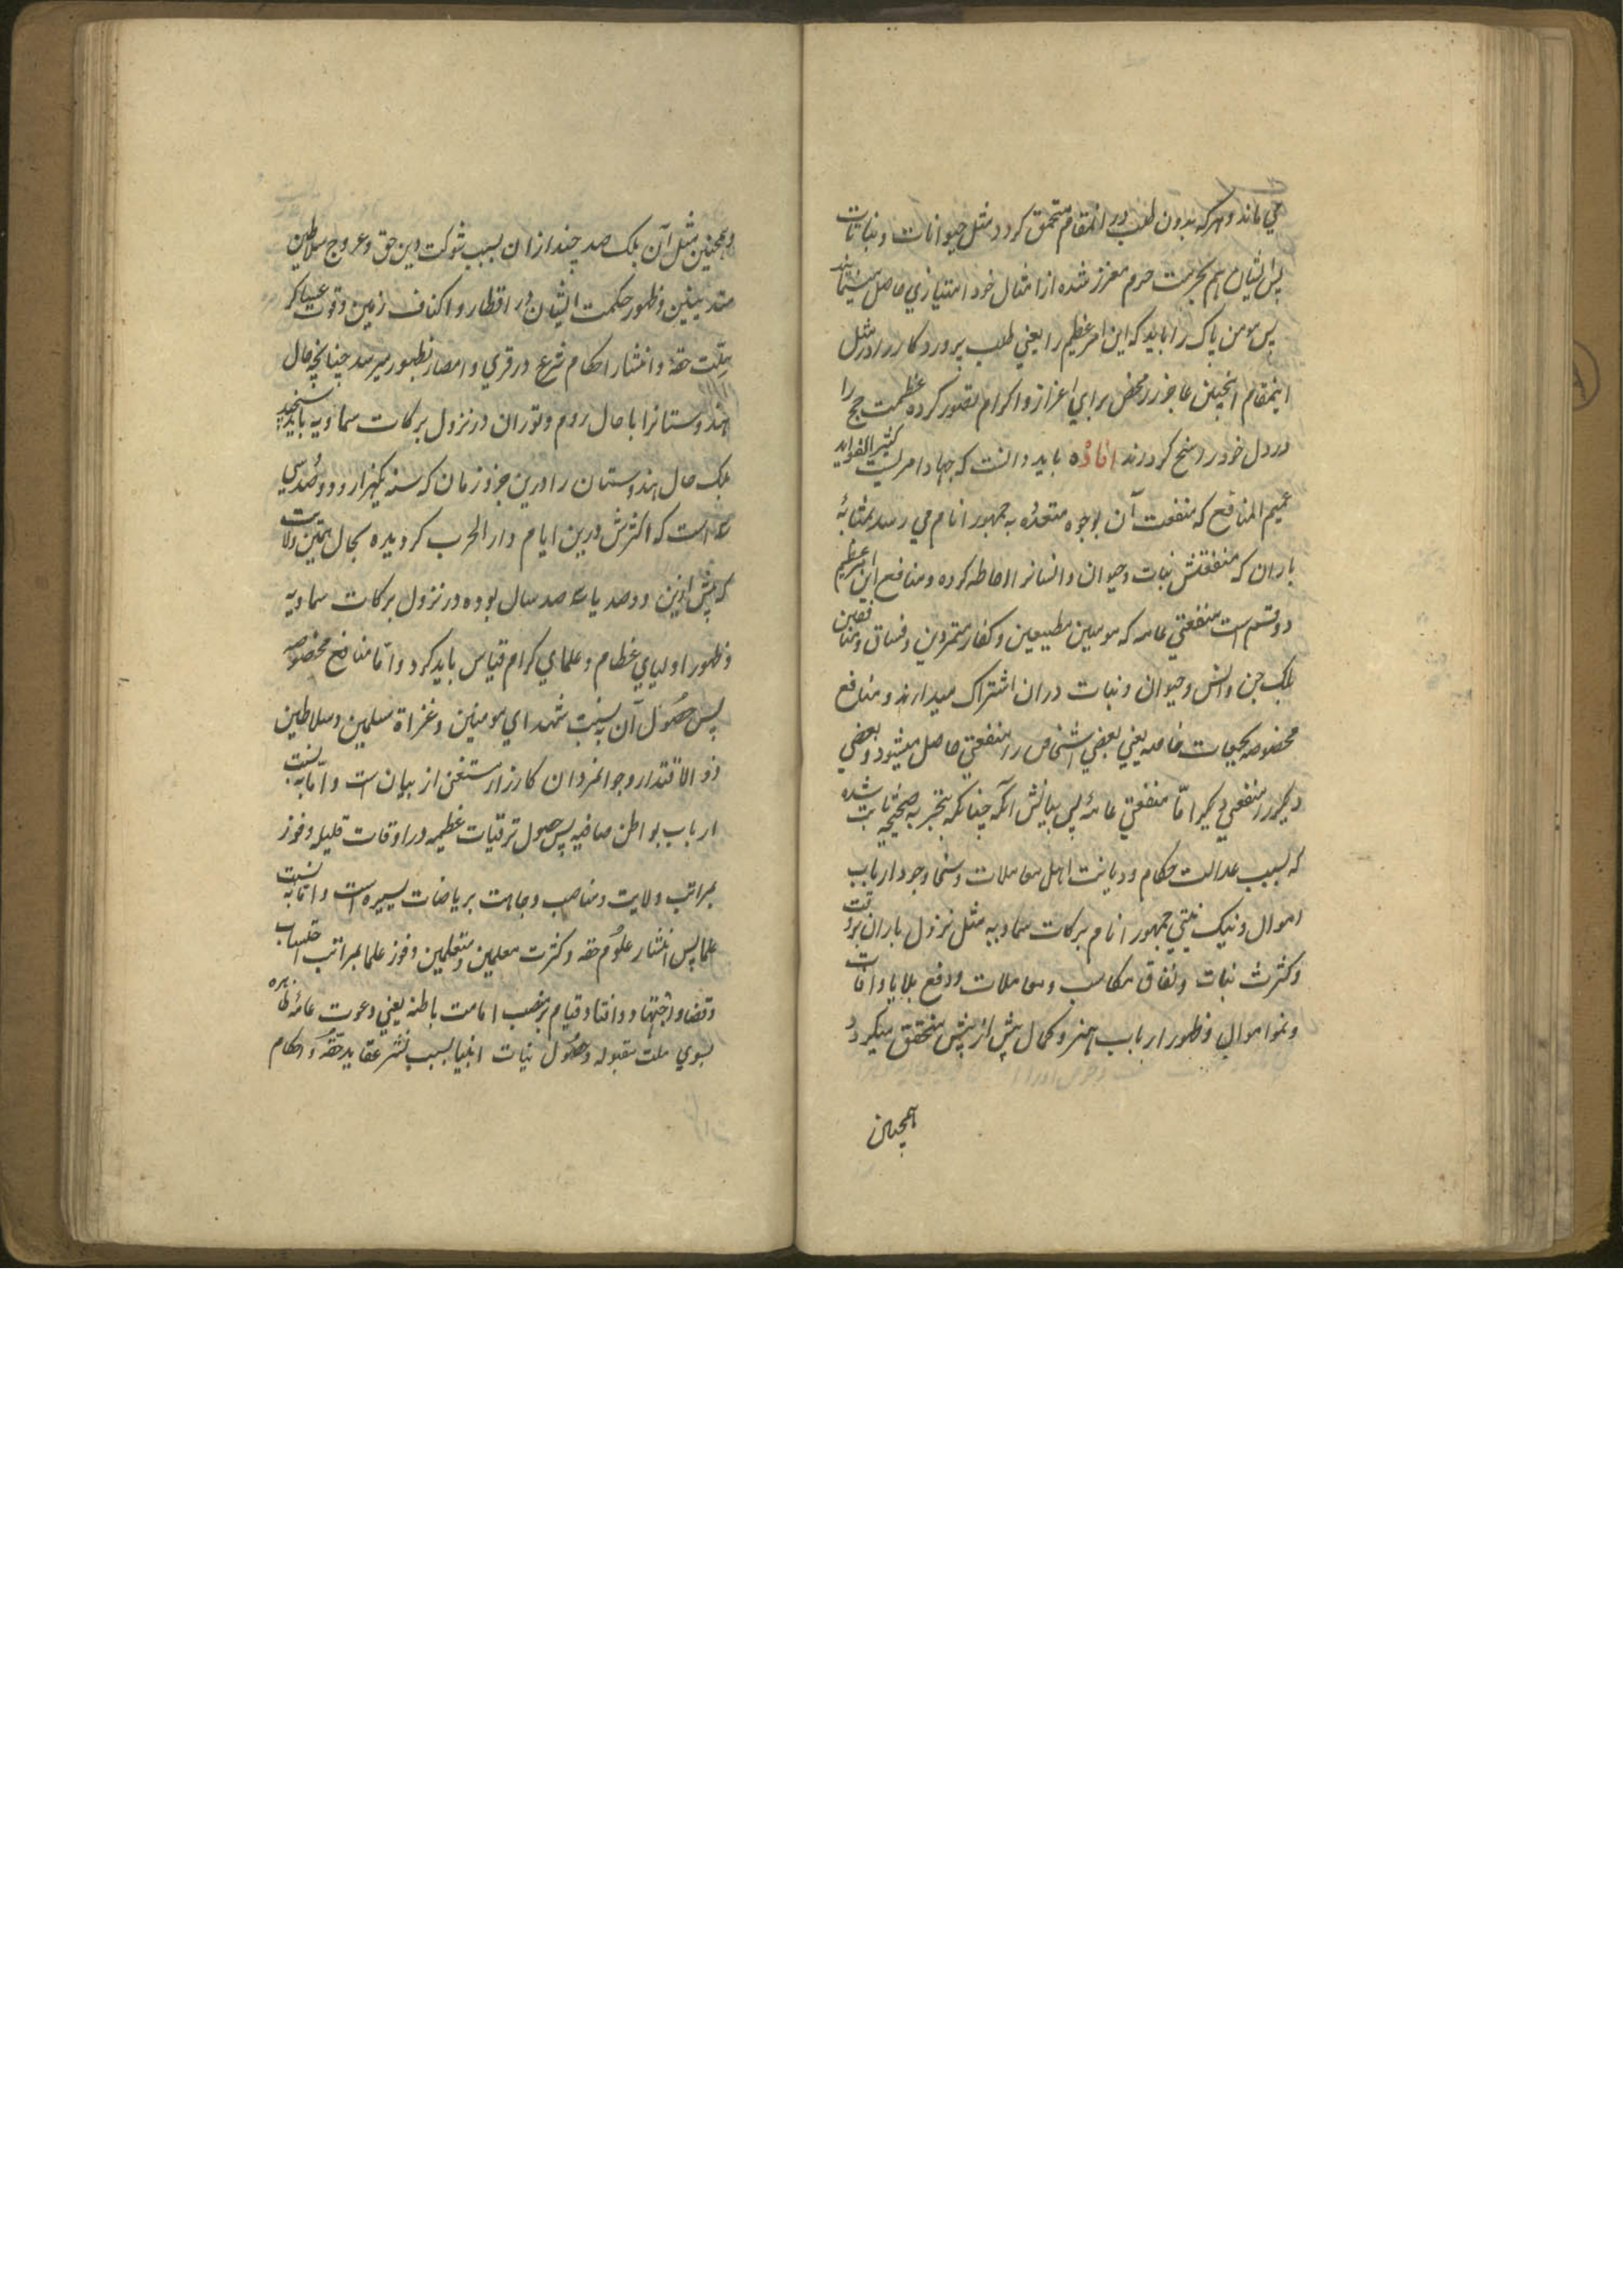 می ماند و هرکه بدون طلب در انمقام متحقق کردد مثل حیوانات و نباتات
پس ایشان هم بحرمت حرم معزز شده از امثال خود امتیازی حاصل مینمایند
پس مومن پاک را باید که این امر عظیم را یعنی طلب پروردکار را در مثل
اینمقام اینچنین عاجز را محض برای اعزاز و اکرام تصور کرده عظمت حج را
در دل خود راسخ کرداند افاده باید دانست که جهاد امریست کثیر الفواید
عمیم المنافع که منفعت آن بوجوه متعدده به جمهور انام می رسد بمثابهٔ
باران که منفعتش نبات و حیوان و انسانرا احاطه کرده و منافع این امر عظیم
دو قسم است منفعتی عامه که مومنین مطیعین و کفار متمردین و فساق و منافقین
بلک جن و انس و حیوان و نبات دران اشتراک میدارند و منافع
مخصوصه بجماعات خاصه یعنی بعضی اشخاص را منفعتی حاصل میشود و بعضی
دیکر را منفعتی دیکر امّا منفعتی عامه پس بیانش آنکه چنانکه بتجربه صحیحه ثابت شده
که بسبب عدالت حکام و دیانت اهل معاملات و سخا وجود ارباب
اموال و نیک نیتی جمهور انام برکات سماویه مثل نزول باران بروقت
و کثرت نبات و نفاق مکاسب و معاملات و دفع بلایا و آفات
و نمو اموال و ظهور ارباب هنر و کمال بیش از بیش متحقق میکردد
همچنین
وهمچنین مثل آن بلک صد چند ازان بسبب شوکت دین حق و عروج سلاطین
متدینین و ظهور حکمت ایشان در اقطار و اکناف زمین و قوت عساکر
ملّت حقه و انتشار احکام شرع در قری و امصار بظهور میرسد چنانچه حال
هندوستانرا با حال روم و توران در نزول برکات سماویه باید سنجید
بلک حال هندوستان را درین جزو زمان که سنه یکهزار و دو صد و سی
سه است که اکثرش درین ایام دار الحرب کردیده بحال همین ولایت
که پیش ازین دو صد یا سه صد سال بوده در نزول برکات سماویه
و ظهور اولیای عظام و علمای کرام قیاس باید کرد و امّا منافع مخصوصه
پس حصول آن به نسبت شهدای مومنین و غزاة مسلمین و سلاطین
ذو الاقتدار و جوانمردان کارزار مستغنی از بیان ست و امّا به نسبت
ارباب بواطن صافیه پس حصول ترقیات عظیمه در اوقات قلیله و فوز
بمراتب ولایت و مناصب وجاهت بریاضات یسیره است و اما به نسبت
علما پس انتشار علوم حقه و کثرت معلمین و متعلمین و فوز علما بمراتب احتساب
و قضا و اجتهاد و افتا و قیام بمنصب امامت باطنه یعنی دعوت عامهٔ ظاهره
بسوی ملت مقبوله و حصول نیابت انبیا بسبب نشر عقاید حقه و احکام